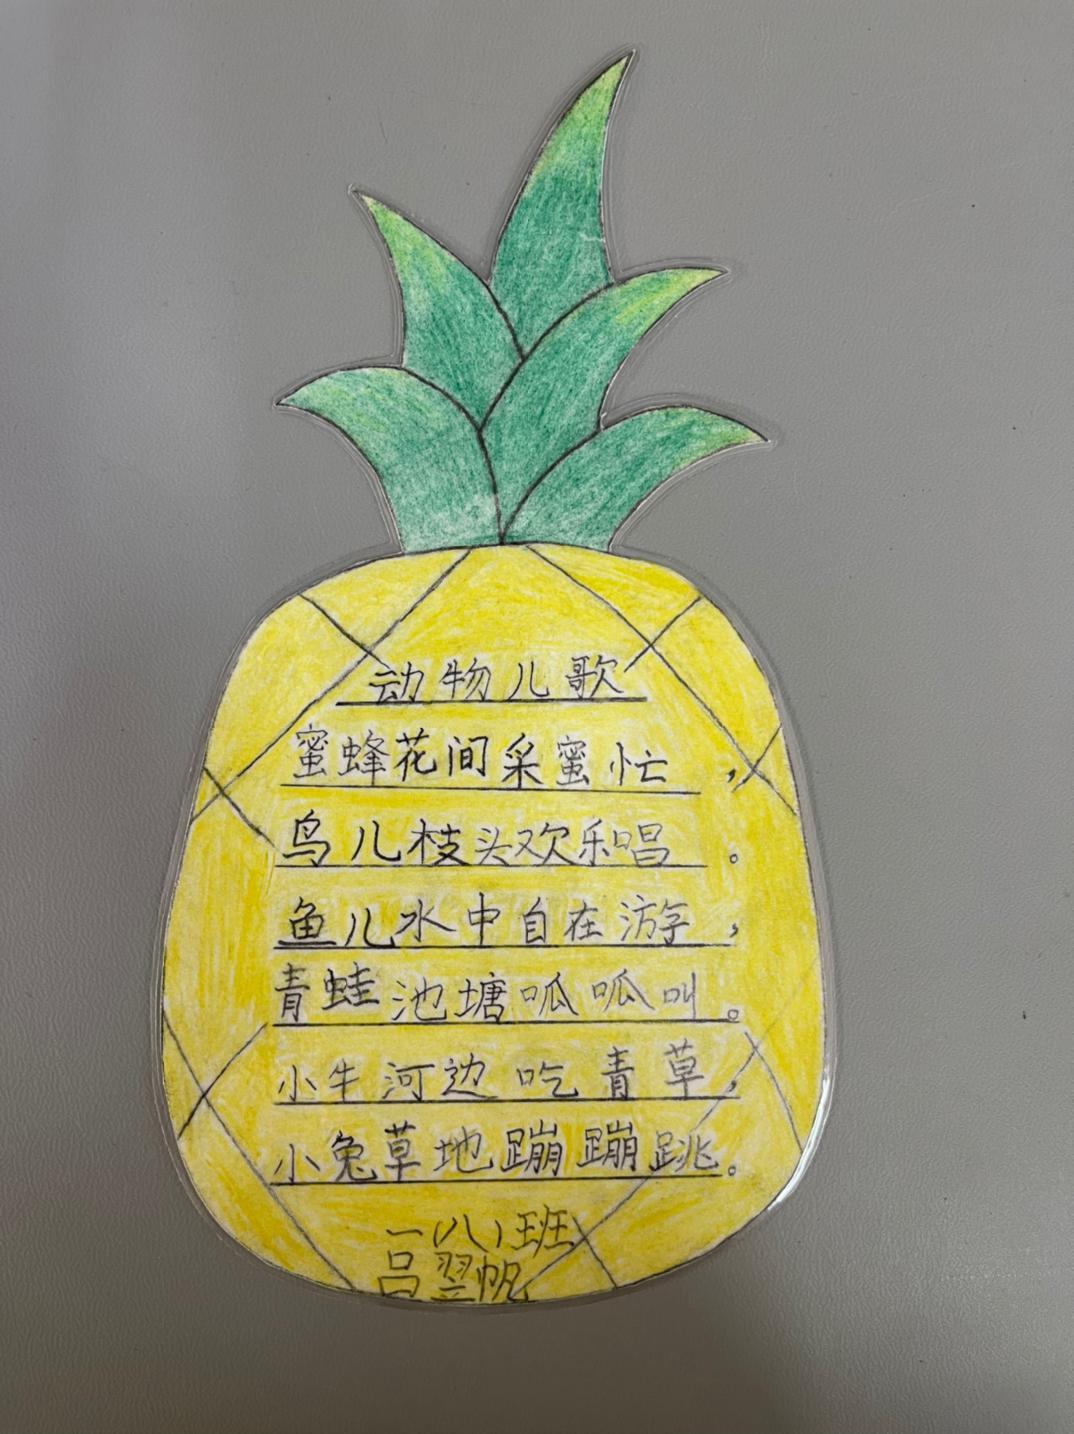 动物儿歌
蜜蜂花间采蜜忙，
鸟儿枝头欢乐唱。
鱼儿水中自在游，
青蛙池塘呱呱叫。
小牛河边吃青草，
小兔草地蹦蹦跳。
一(八)班
吕翌帆